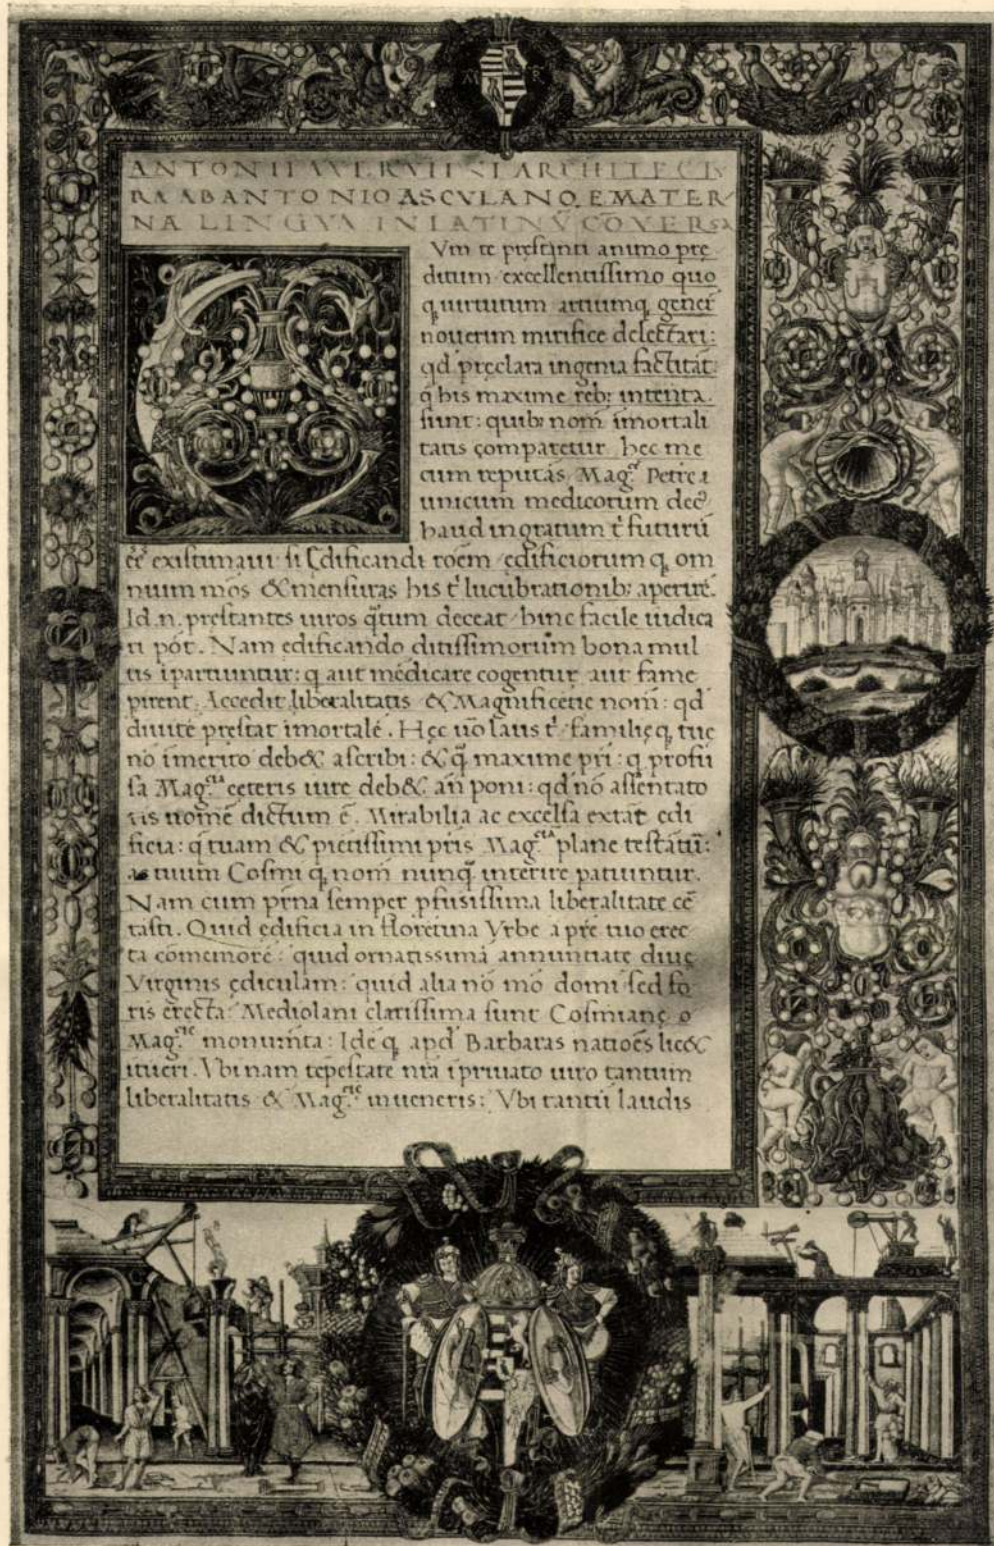 M R
ANTONII AVERVLINI ARCHITECTV
RA AB ANTONIO ASCVLANO. E MATER
NA LINGVA IN LATINV̄ CŌVERSA
Vm te prestanti animo pre
ditum excellentissimo quo
q uirtutum artiumq generi
nouerim mirifice delectari:
qd preclara ingenia factitāt
q his maxime reb: intenta
sunt: quib: nom̄ īmortali
tatis comparetur. hec me
cum reputās Mag.ce Petre
unicum medicorum dec9
haud ingratum t̄ futurū
ēē existimaui si Ędificandi rōem ędificiorum q, om
nium mōs & mensuras his t̄ lucubrationib: aperirē.
Id.n. prestantes uiros q̄tum deceat hinc facile iudica
ri pōt. Nam edificando ditissimorum bona mul
tis īpartiuntur: q aut médicare cogentur aut fame
pirent. Accedit liberalitatis & Magnificetie nom̄: qd
diuite prestat īmortalé. Hęc uō laus t̄ familięq, tuę
nō īmerito deb& ascribi: & q̄ maxime pri: q profu
sa Mag.cia ceteris iure deb& an̄ poni: qd nō assentato
ris nomē dictum ē. Mirabilia ac excelsa extāt edi
ficia: q tuam & pietissimi pris Mag.ctA plane testātū:
ac tuum Cosmi q, nom̄ nunq̄ interire patiuntur.
Nam cum prna semper pfusissima liberalitate cē
tasti. Quid ędificia in florētina Vrbe a prē tuo erec
ta cōmemorē: quid ornatissimā annuntiate diuę
Virginis ędiculam: quid alia nō mō domi sed fo
ris erecta: Mediolani clarissima sunt Cosmianę o
Mag.cie monumta: Idē q, apd Barbaras natiōes lic&
ītueri. Vbi nam tēpestate nrā ī priuato uiro tantum
liberalitatis & Mag.cie inueneris: Vbi tantū laudis